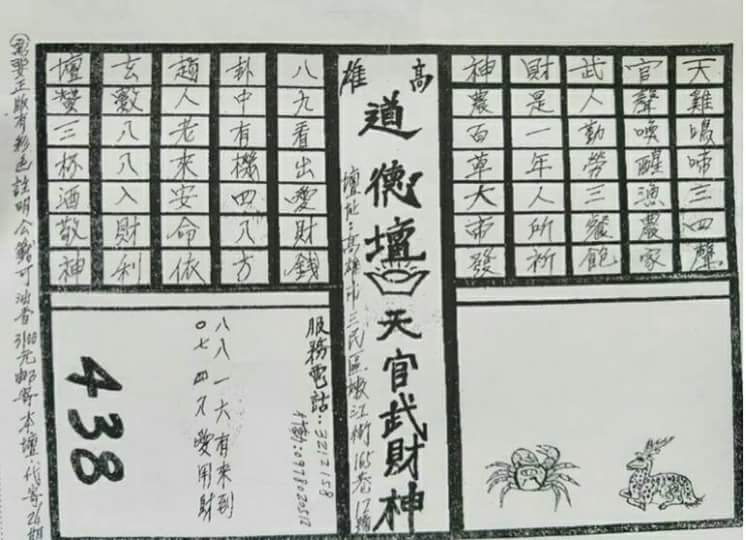 天雞鳴啼三四聲
官聲喚醒漁農家
武人勤勞三餐飽
財是一年人所祈
神農百草大帝發
高雄
道德壇
天官武財神
壇址：高雄市三民區嫩江街165巷12號
八九看出愛財錢
卦中有機四八方
趙人老來安命依
玄數八八入財利
壇贊三杯酒敬神
服務電話：3212158
行動：0978020512
八八一大有來到
〇七四又愛用財
438
需要正版有彩色註明公籤可油香3100元郵寄本壇．代寄26期